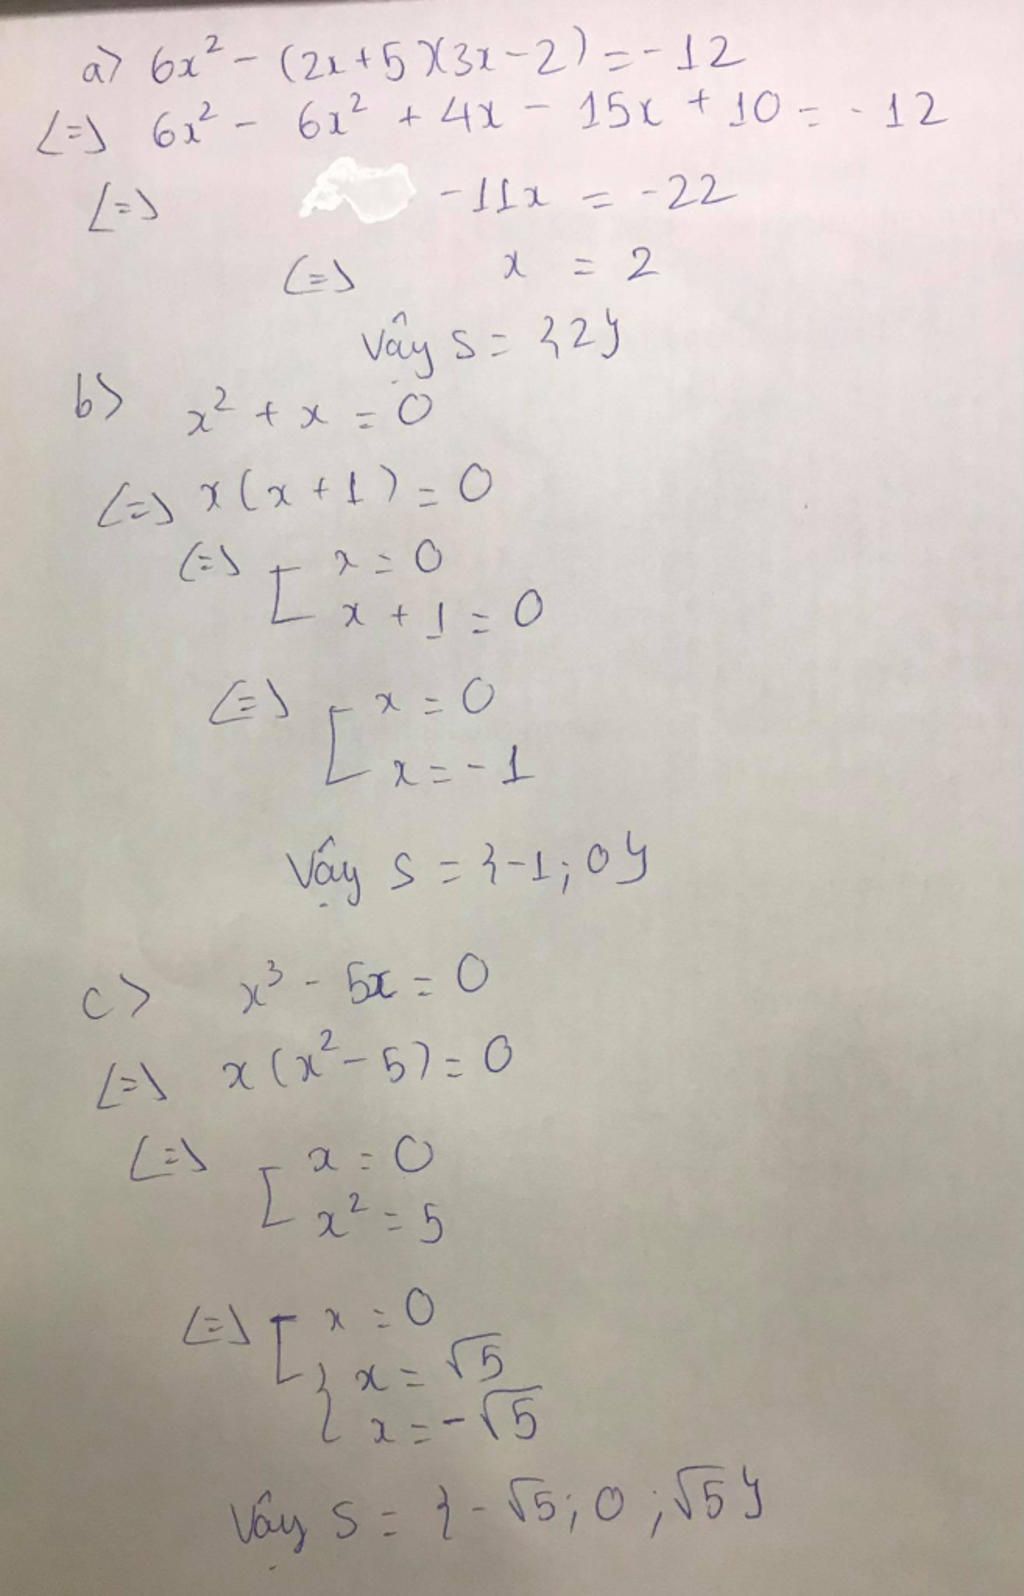 a) 6x² - (2x+5)(3x-2) = -12
<=> 6x² - 6x² + 4x - 15x + 10 = -12
<=> -11x = -22
<=> x = 2
Vậy S = {2}
b) x² + x = 0
<=> x(x+1) = 0
<=> [ x = 0
x + 1 = 0
<=> [ x = 0
x = -1
Vậy S = {-1; 0}
c) x³ - 5x = 0
<=> x(x² - 5) = 0
<=> [ x = 0
x² = 5
<=> [ x = 0
{ x = √5
x = -√5
Vậy S = {-√5; 0; √5}